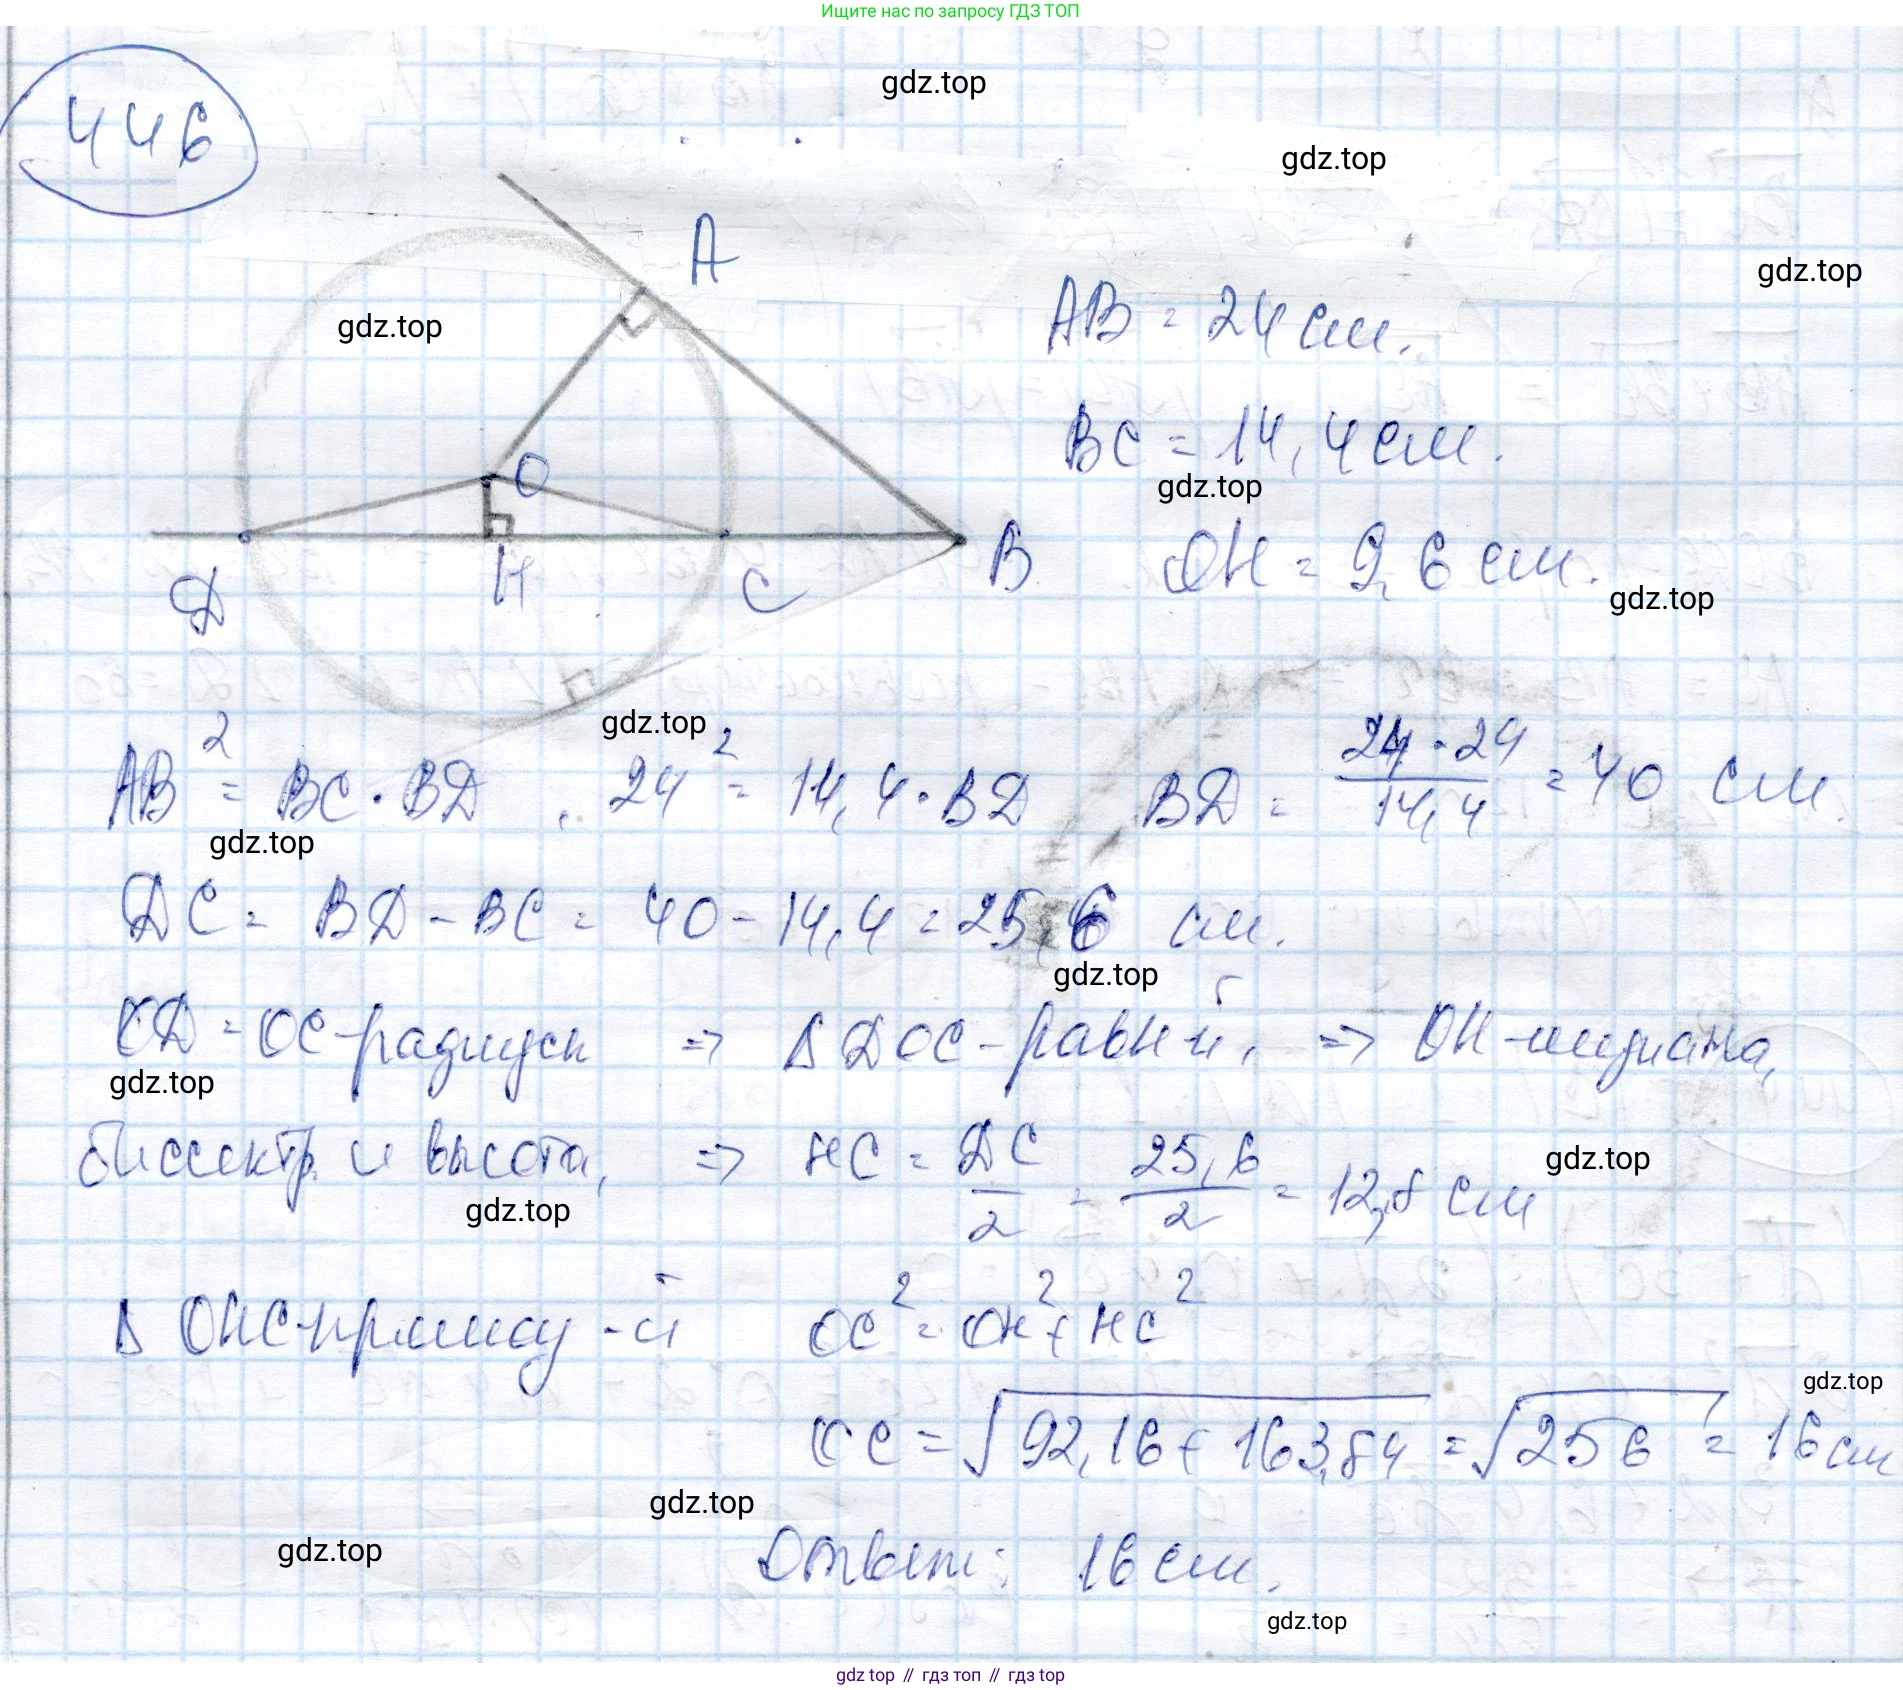 Ищите нас по запросу ГДЗ ТОП
446
gdz.top
gdz.top
gdz.top
gdz.top
A
O
D
H
C
B
AB = 24 см.
BC = 14,4 см.
gdz.top
OH = 9,6 см.
gdz.top
gdz.top
AB² = BC · BD , 24² = 14,4 · BD BD = 24 · 24 / 14,4 = 40 см.
gdz.top
DC = BD - BC = 40 - 14,4 = 25,6 см.
gdz.top
OD = OC - радиусы => Δ DOC - равн-й, => OH - медиана,
gdz.top
биссектр. и высота, => HC = DC / 2 = 25,6 / 2 = 12,8 см
gdz.top
gdz.top
Δ OHC - прямоу-й OC² = OH² + HC²
gdz.top
OC = √92,16 + 163,84 = √256 = 16 см
gdz.top
gdz.top
Ответ: 16 см.
gdz.top
gdz top // гдз топ // гдз top